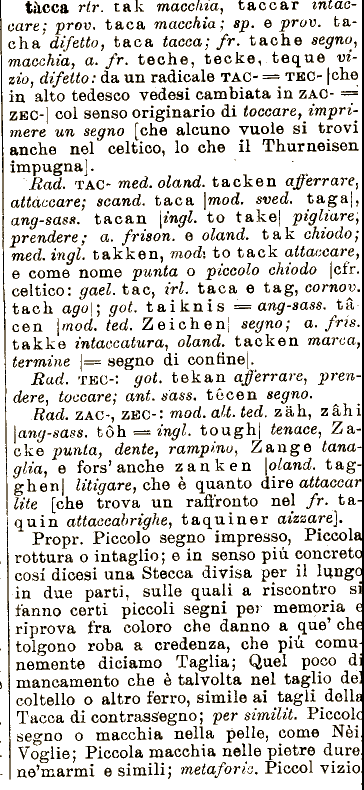 tàcca rtr. tak macchia, taccar intac-
care; prov. taca macchia; sp. e prov. ta-
cha difetto, taca tacca; fr. tache segno,
macchia, a. fr. teche, tecke, teque vi-
zio, difetto: da un radicale TAC- = TEC- |che
in alto tedesco vedesi cambiata in ZAC- =
ZEC-| col senso originario di toccare, impri-
mere un segno [che alcuno vuole si trovi
anche nel celtico, lo che il Thurneisen
impugna].
Rad. TAC- med. oland. tacken afferrare,
attaccare; scand. taca |mod. sved. taga|,
ang-sass. tacan |ingl. to take| pigliare,
prendere; a. frison. e oland. tak chiodo;
med. ingl. takken, mod. to tack attaccare,
e come nome punta o piccolo chiodo |cfr.
celtico: gael. tac, irl. taca e tag, cornov.
tach ago|; got. taiknis = ang-sass. tâ-
cen |mod. ted. Zeichen| segno; a. fris.
takke intaccatura, oland. tacken marca,
termine |= segno di confine|.
Rad. TEC-: got. tekan afferrare, pren-
dere, toccare; ant. sass. têcen segno.
Rad. ZAC-, ZEC-: mod. alt. ted. zäh, zâhi
|ang-sass. tôh = ingl. tough| tenace, Za-
cke punta, dente, rampino, Zange tana-
glia, e fors' anche zanken |oland. tag-
ghen| litigare, che è quanto dire attaccar
lite [che trova un raffronto nel fr. ta-
quin attaccabrighe, taquiner aizzare].
Propr. Piccolo segno impresso, Piccola
rottura o intaglio; e in senso più concreto
cosí dicesi una Stecca divisa per il lungo
in due parti, sulle quali a riscontro si
fanno certi piccoli segni per memoria e
riprova fra coloro che danno a que' che
tolgono roba a credenza, che più comu-
nemente diciamo Taglia; Quel poco di
mancamento che è talvolta nel taglio del
coltello o altro ferro, simile ai tagli della
Tacca di contrassegno; per similit. Piccolo
segno o macchia nella pelle, come Nèi,
Voglie; Piccola macchia nelle pietre dure,
ne'marmi e simili; metaforic. Piccol vizio